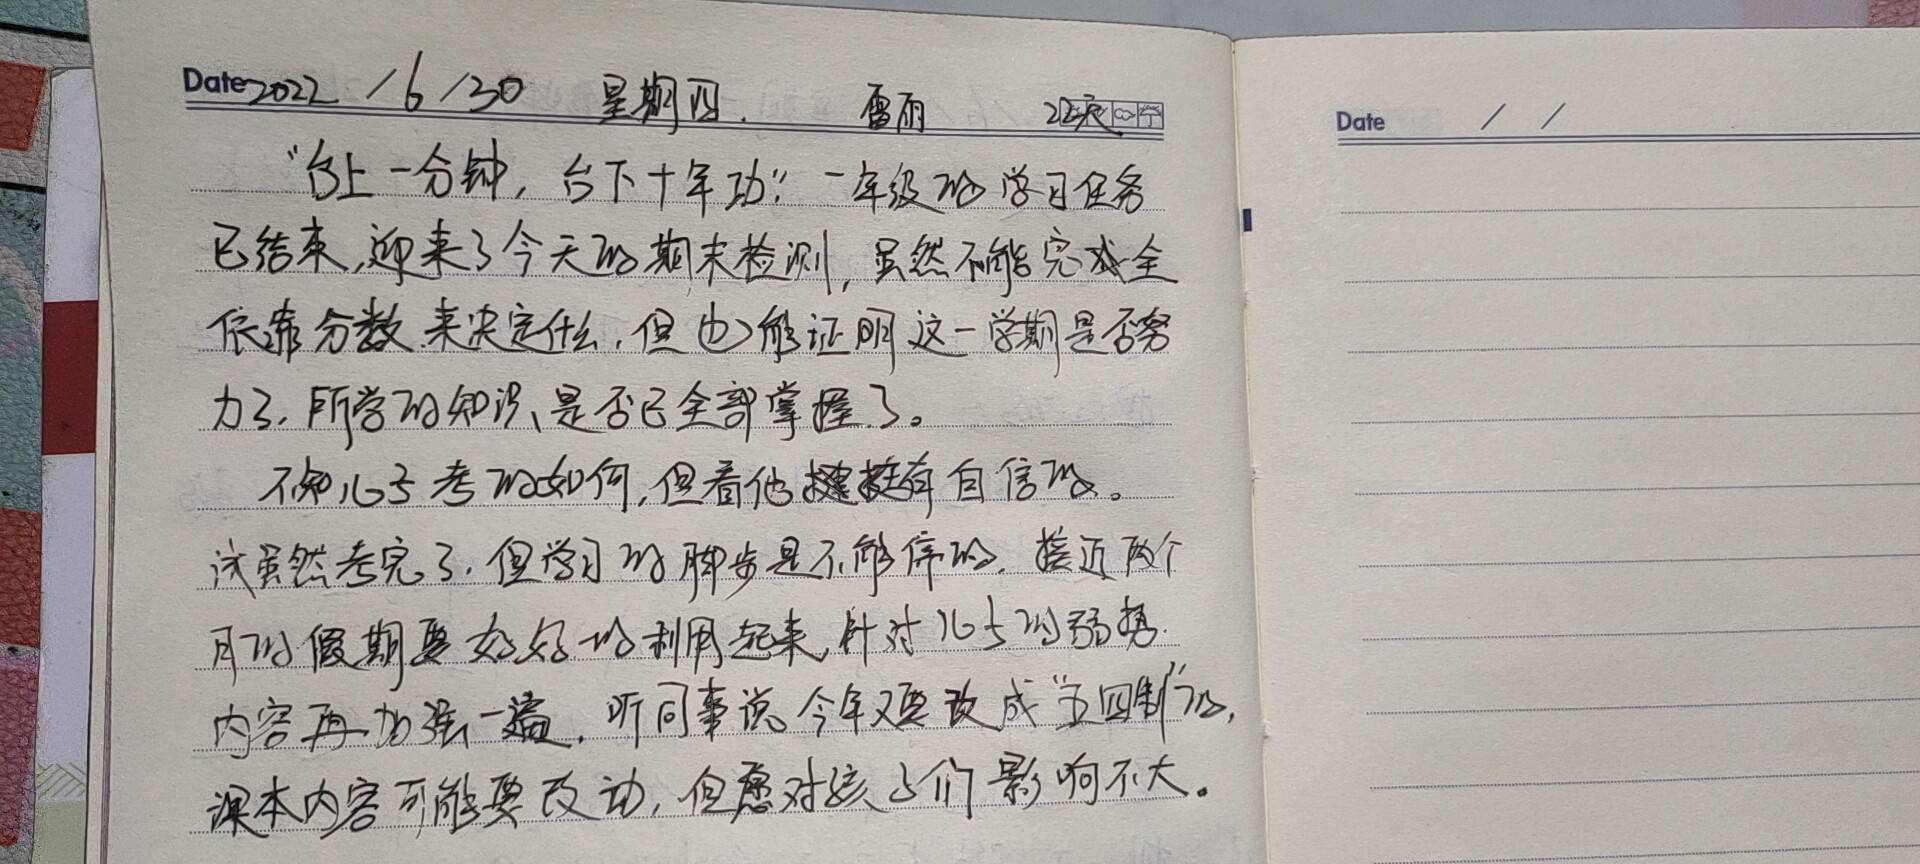 Date 2022/6/30 星期四. 雷雨 22天
"台上一分钟，台下十年功"，一年级的学习任务
已结束，迎来了今天的期末检测，虽然不能完成全
依靠分数来决定什么，但也能证明这一学期是否努
力了，所学的知识、是否已全部掌握了。
不知儿子考的如何，但看他挺有自信的。
试虽然考完了，但学习的脚步是不能停的，接近两个
月的假期要好好的利用起来，针对儿子的弱势
内容再加强一遍，听同事说今年又要改成"五四制"的，
课本内容可能要改动，但愿对孩子们影响不大。
Date / /